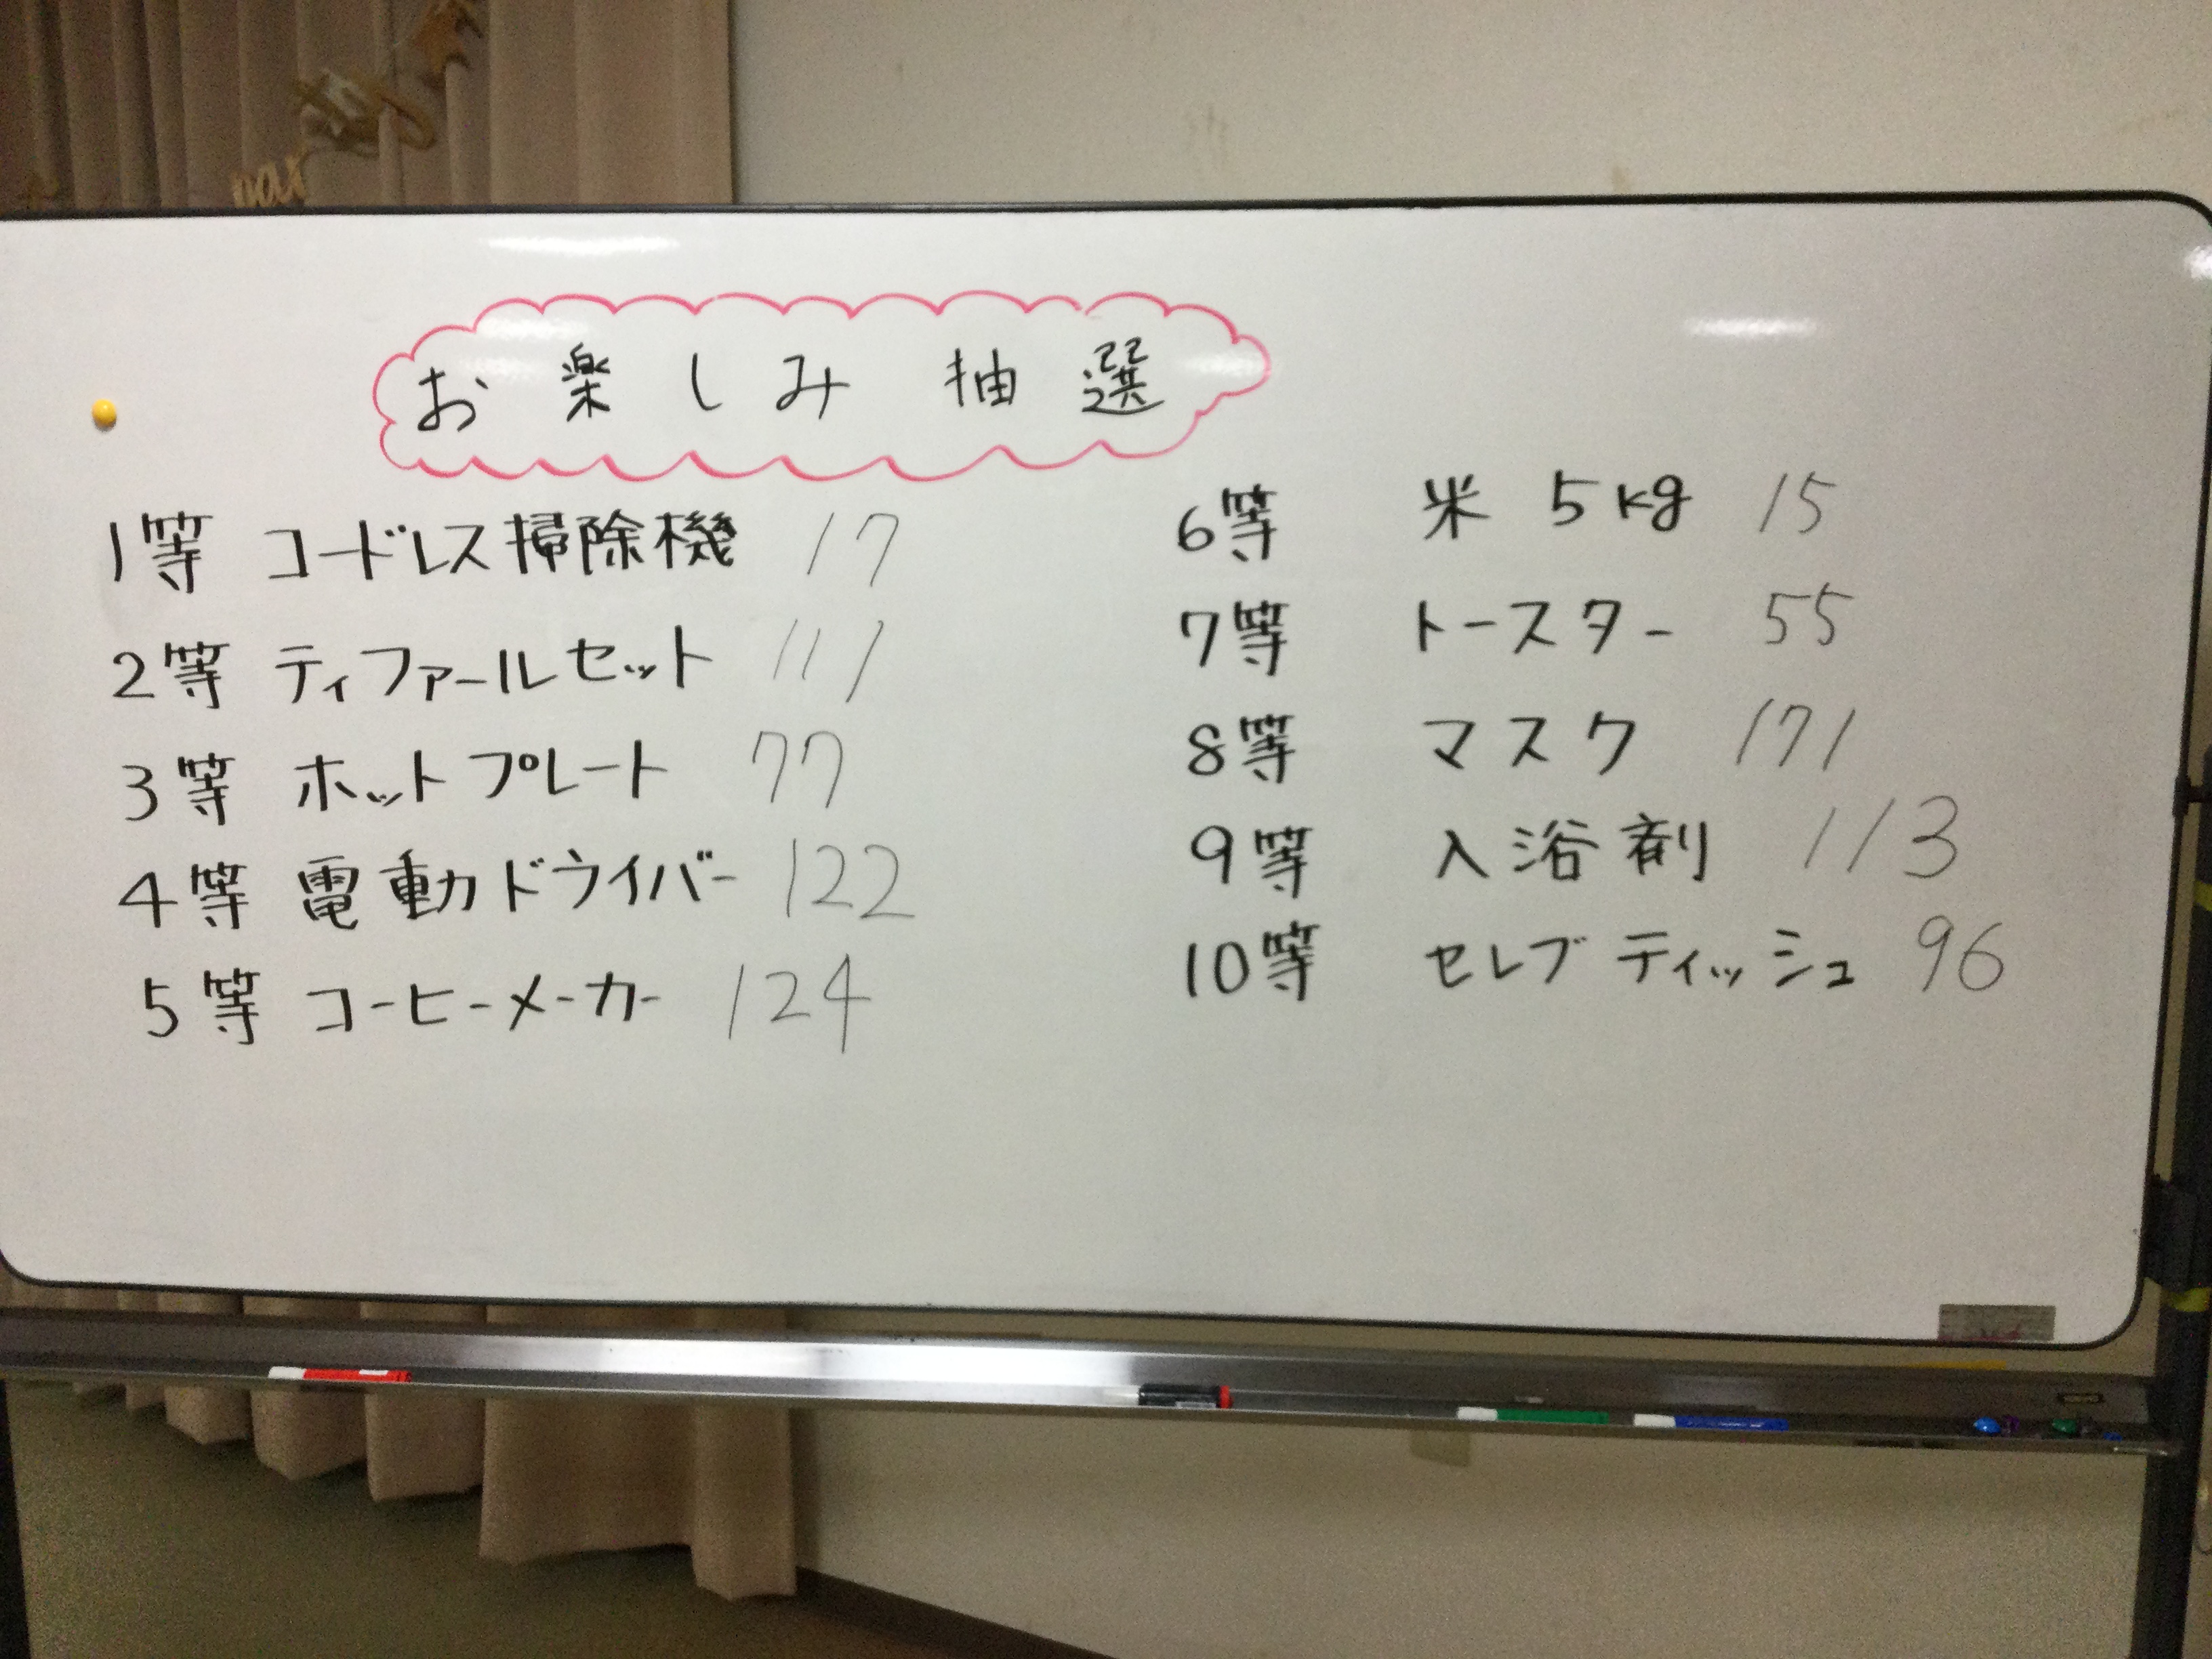 お楽しみ抽選
1等 コードレス掃除機 17
2等 ティファールセット 111
3等 ホットプレート 77
4等 電動ドライバー 122
5等 コーヒーメーカー 124
6等 米 5kg 15
7等 トースター 55
8等 マスク 171
9等 入浴剤 113
10等 セレブティッシュ 96